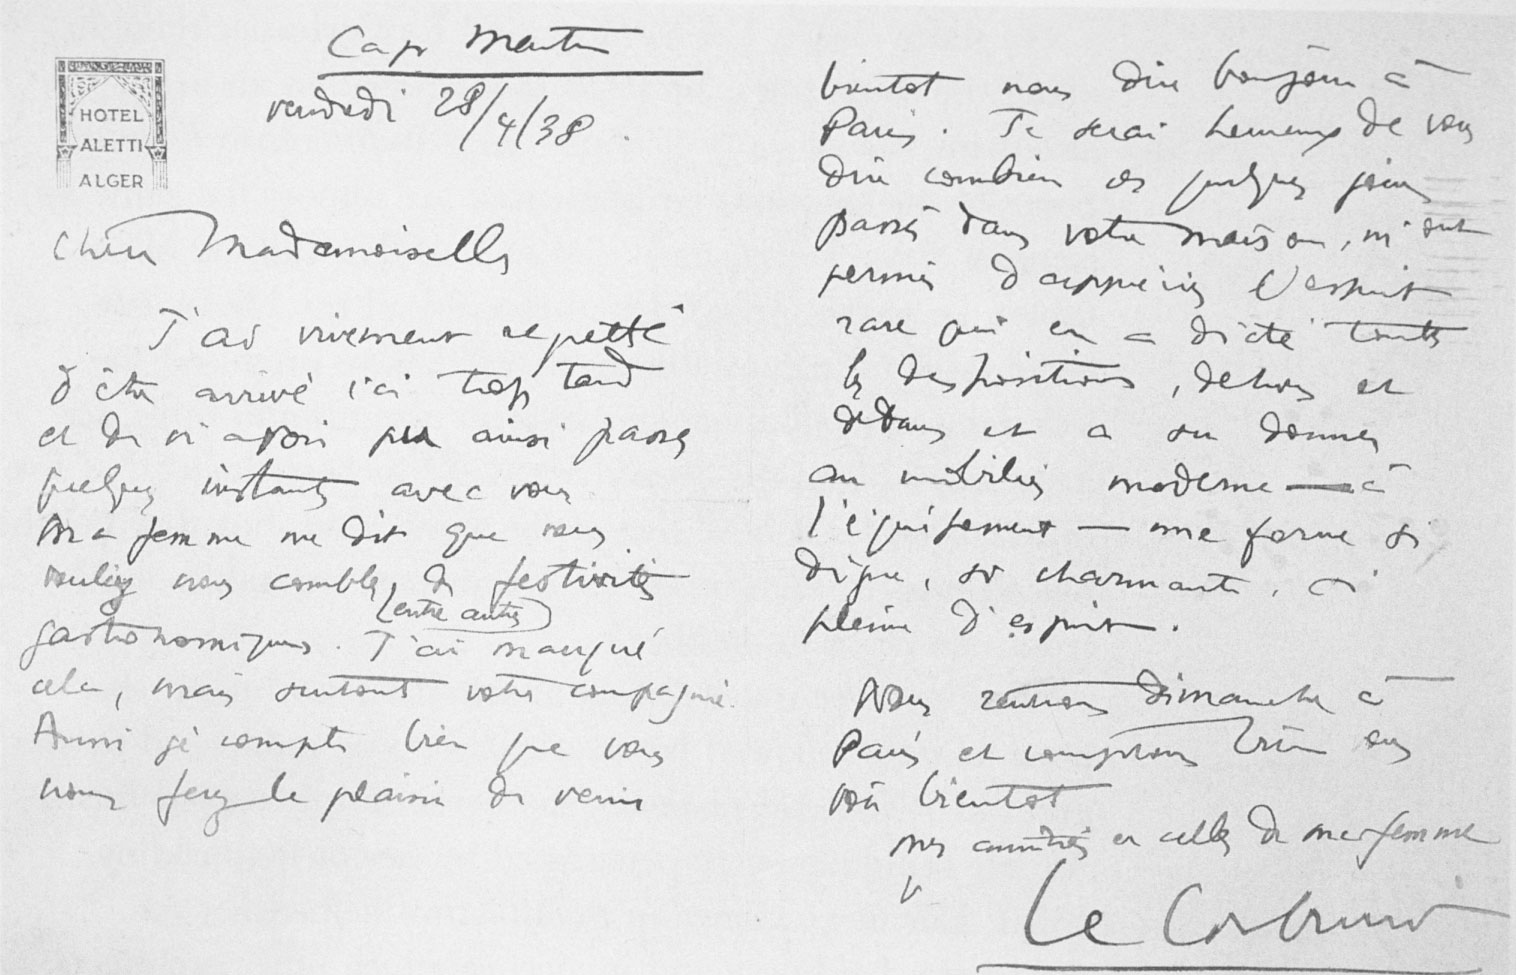 HOTEL
ALETTI
ALGER
Cap Martin
vendredi 28/4/38.
Chère Mademoiselle
J'ai vivement regretté
d'être arrivé ici trop tard
et de n'avoir pu ainsi passer
quelques instants avec vous
Ma femme me dit que vous
vouliez nous combler, de festivités
(entre autres)
gastronomiques. J'ai manqué
cela, mais surtout votre compagnie.
Aussi je compte bien que vous
nous ferez le plaisir de venir
bientot nous dire bonjour à
Paris. Je serai heureux de vous
dire combien ces quelques jours
passés dans votre maison, m'ont
permis d'apprécier l'esprit
rare qui en a dicté toutes
les dispositions, dehors et
dedans et a su donner
au mobilier moderne — à
l'équipement — une forme si
digne, si charmante, si
pleine d'esprit.
Nous rentrons Dimanche à
Paris et comptons bien vous
voir bientot
mes amitiés et celles de ma femme
v
Le Corbusier